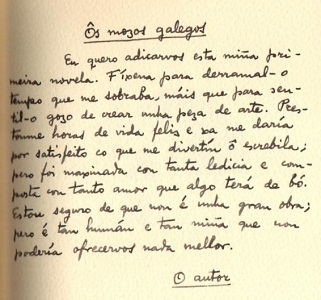 Ôs mozos galegos
Eu quero adicarvos esta miña pri-
meira novela. Fíxena para derramal-o
tempo que me sobraba, máis que para sen-
til-o gozo de crear unha peza de arte. Pres-
toume horas de vida felís e xa me daría
por satisfeito co que me divertín ô escrebila;
pero foi maxinada con tanta ledicia e com-
posta con tanto amor que algo terá de bó.
Estou seguro de que non é unha gran obra;
pero é tan humán e tan miña que non
podería ofrecervos nada mellor.
O autor